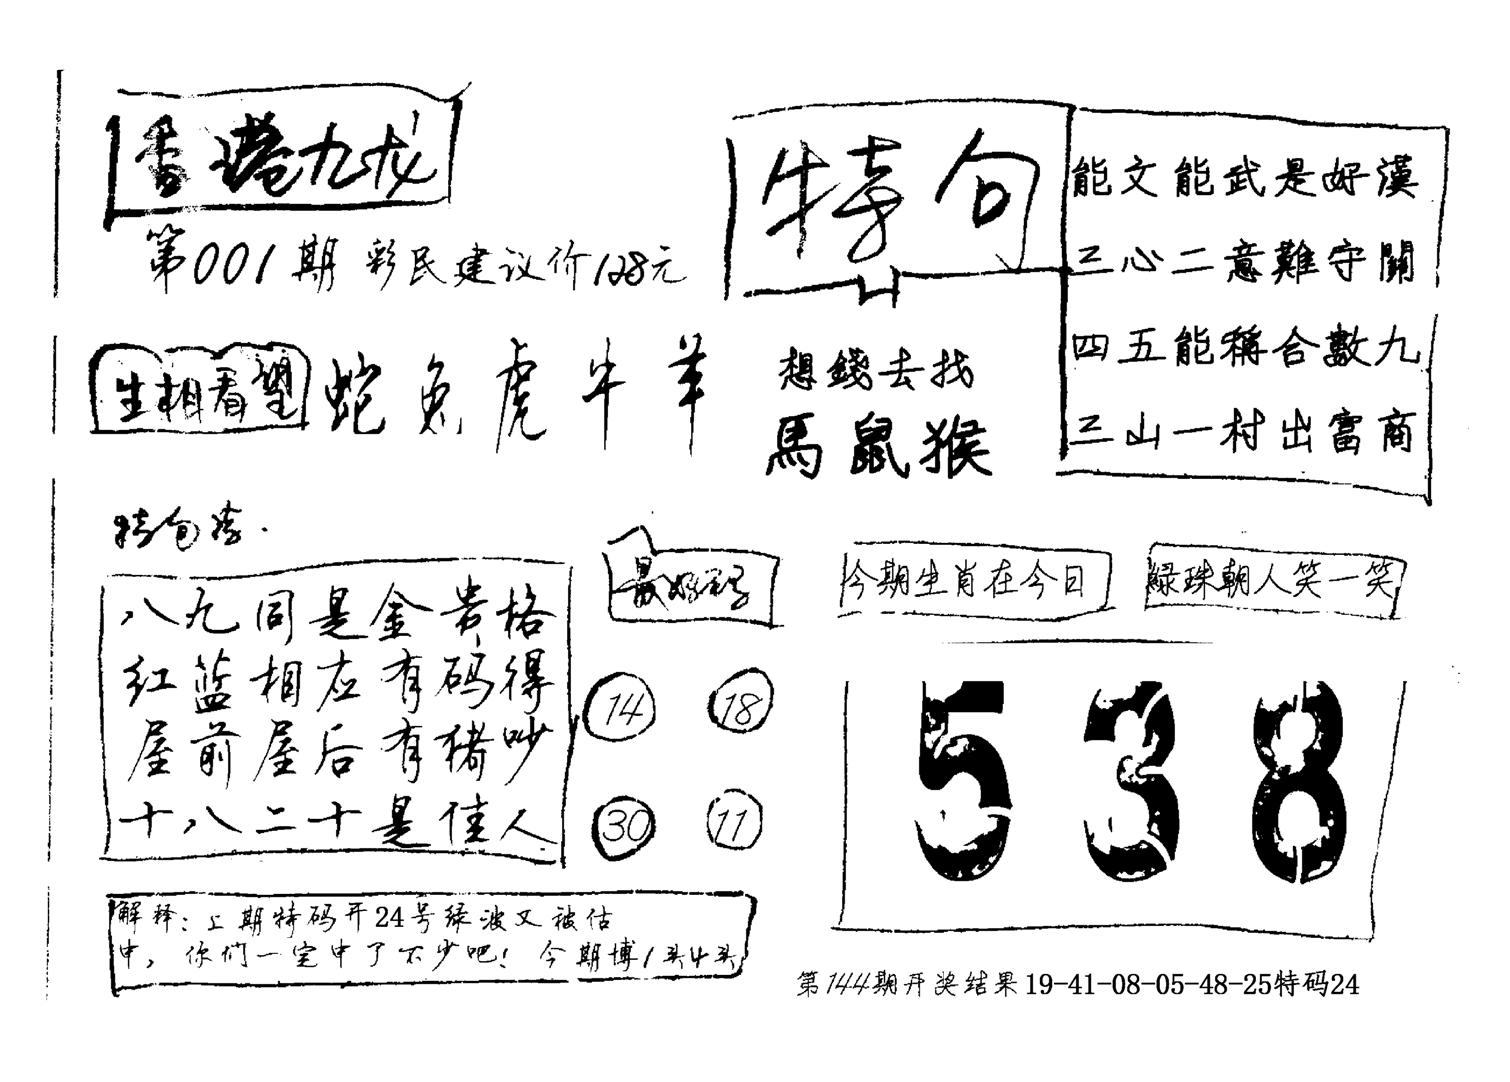 香港九龙
第001期 彩民建议价128元
特句
能文能武是好漢
三心二意難守關
四五能稱合數九
三山一村出富商
生相看望
蛇兔虎牛羊
想錢去找
馬鼠猴
八九同是金贵格
红蓝相应有码得
屋前屋后有猪吵
十八二十是佳人
最好码
14 18
30 11
今期生肖在今日
緑珠朝人笑一笑
538
解释：上期特码开24号绿波又被估
中，你们一定中了不少吧！今期博1头4头
第144期开奖结果19-41-08-05-48-25特码24